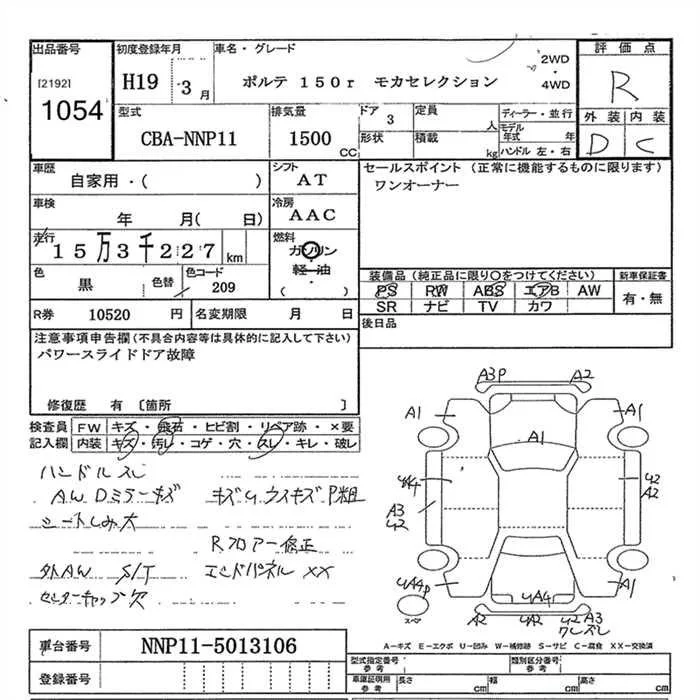 出品番号 初度登録年月 車名・グレード 評価点
[2192] 1054
H19年 3月 ポルテ 150r モカセレクション 2WD・4WD R
型式 排気量 ドア 3 定員 人 ディーラー・並行 外装 内装
CBA-NNP11 1500 CC 形状 積載 kg モデル年式 年 ハンドル 左・右 D C
車歴 シフト セールスポイント (正常に機能するものに限ります)
自家用・( ) AT ワンオーナー
車検 冷房
年 月( 日) AAC
走行 燃料
15万3千227 km ガソリン・軽油・( )
色 色替 色コード 装備品(純正品に限り○をつけてください) 新車保証書
黒 209 PS RW ABS エアB AW 有・無
SR ナビ TV カワ
R券 10520 円 名変期限 月 日 後日品
注意事項申告欄(不具合内容等は具体的に記入して下さい)
パワースライドドア故障
修復歴 有 [箇所 ]
検査員 FW キズ・飛石・ヒビ割・リペア跡・×要
記入欄 内装 キズ・汚レ・コゲ・穴・スレ・キレ・破レ
ハンドルスレ
AW Dミラーキズ キズUウスキズP粗
シートしみ大
Rフロアー修正
外AW S/T エンドパネルXX
センターキャップ欠
A3P A2
A1 A1
A1
UA4 U2
A2
A3
U2
UA4P A1
スペア UA4
A2 UA2 U2 A3
ワレ ズレ
A-キズ E-エクボ U-凹み W-補修跡 S-サビ C-腐食 XX-交換済
車台番号 NNP11-5013106
登録番号
型式指定番号 参考 類別区分番号 参考
車庫証明用 参考 長さ cm 幅 cm 高さ cm